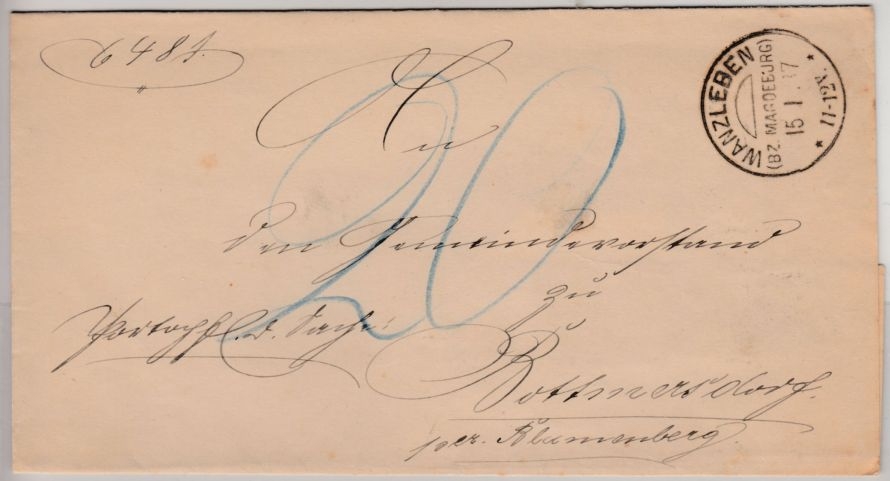 6481.
WANZLEBEN
(BZ. MAGDEBURG)
15 1
11-12V.
20
An
den Gemeindevorstand
zu
Portopfl. D. Sache.
Bottmersdorf.
per. Blumenberg.